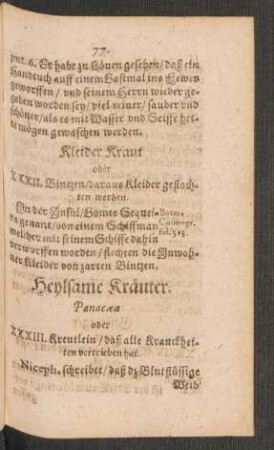 77.
pert. 6. Er habe zu Löuen gesehen/daß ein
Handtuch auff einem Gastmal ins Fewer
geworffen/und seinem Herrn wieder ge-
geben worden sey/viel reiner/sauber und
schöner/als es mit Wasser und Seiffe het-
te mögen gewaschen werden.
Kleider Kraut
oder
XXXII. Bintzen/daraus Kleider geflach-
ten werden.
In der Insul/Gomes Sequei-
ra genant/von einem Schiffman
welcher mit seinem Schiffe dahin
verworffen worden/flechten die Inwoh-
ner Kleider von zarten Bintzen.
Boter.
fol. 315
Heylsame Kräuter.
Panacæa
oder
XXXIII. Kreutlein/daß alle Kranckhei-
ten vertrieben hat.
Niceph. schreibet/daß dz Blutflüssige
Weib